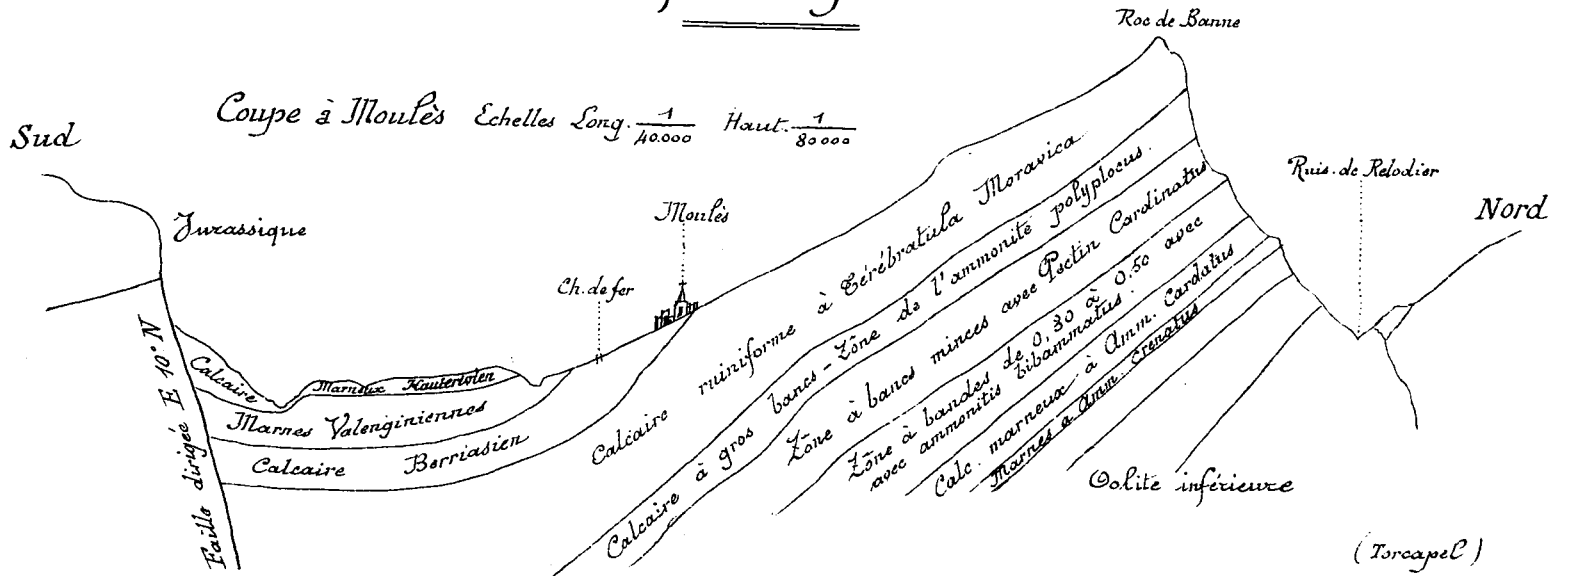 Roc de Banne
Coupe à Moulès Echelles Long. 1/40.000 Haut. 1/80000
Sud
Ruis. de Relodier
Nord
Jurassique
Moulès
Ch. de fer
Calcaire Marneux Hauterivien
Marnes Valenginiennes
Calcaire Berriasien
Faille dirigée E 10° N
Calcaire ruiniforme à Térébratula Moravica
Calcaire à gros bancs - Zône de l'ammonite polyplocus.
Zône à bancs minces avec Pectin Cardinatus
Zône à bandes de 0,30 à 0.50 avec
avec ammonitis bibammatus.
Calc. marneux à Amm. Cardatus
Marnes a Amm. Crenatus
Oolite inférieure
(Torcapel)